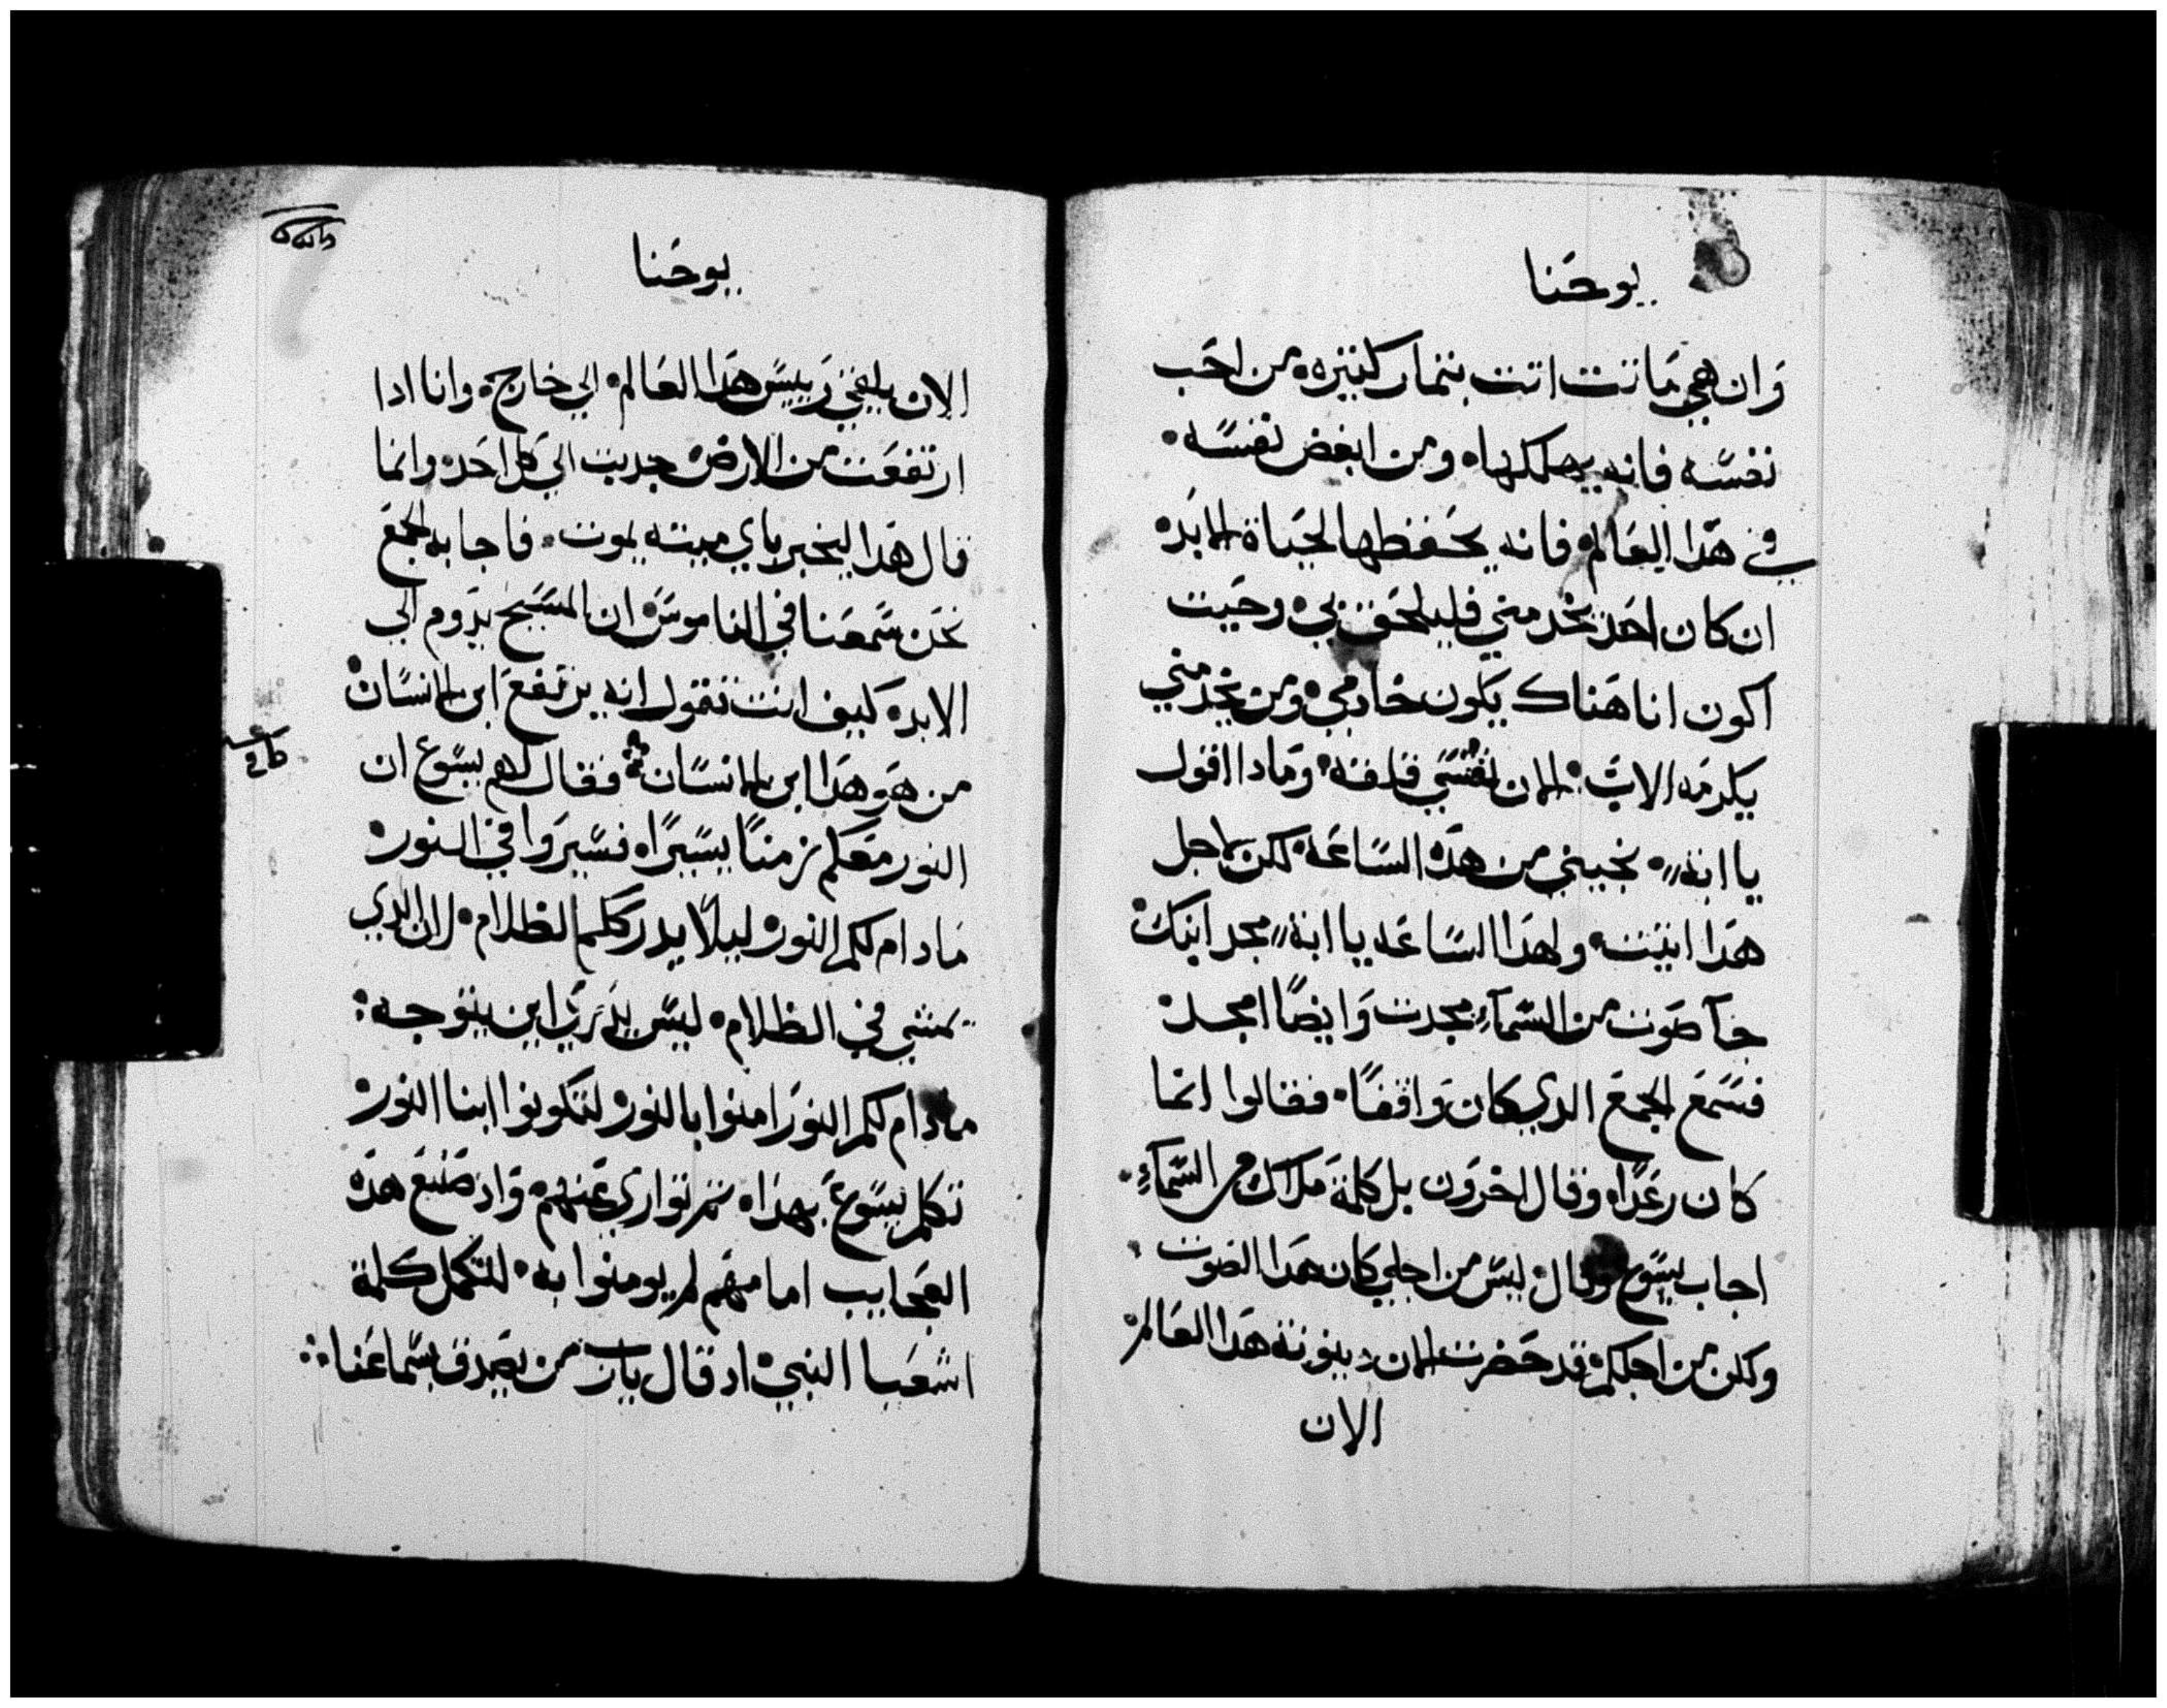 يوحنا
وان هي ماتت اتت بتمار كتيره من احب
نفسه فانه يهلكها ومن ابغض نفسه
في هدا العالم فانه يحفظها لحياة الابد
ان كان احد يخدمني فليلحق بي وحيت
اكون انا هناك يكون خادمي ومن يخدمني
يكرمه الاب الان نفسي قلقه ومادا اقول
يا ابة نجيني من هده الساعه لكن لاجل
هدا اتيت ولهدا الساعه يا ابة مجد ابنك
جآ صوت من السمآء مجدت وايضًا امجد
فسمع الجمع الدي كان واقفًا فقالوا انما
كان رعدًا وقال اخرون بل كلمة ملاك من السمآء
اجاب يسوع وقال ليس من اجلي كان هدا الصوت
ولكن من اجلكم قد حضرت الان دينونة هدا العالم
الان
يوحنا
الان يلقي رييس هدا العالم الي خارج وانا ادا
ارتفعت من الارض جدبت الي كل احد وانما
قال هدا ليخبر باي ميته يموت فاجابه الجمع
نحن سمعنا في الناموس ان المسيح يدوم الي
الابد كيف انت تقول انه يرتفع ابن الانسان
من هو هدا ابن الانسان فقال لهم يسوع ان
النور معكم زمنًا يسيرًا فسيروا في النور
مادام لكم النور ليلًا يدرككم الظلام لان الدي
يمشي في الظلام ليس يدري اين يتوجه
مادام لكم النور امنوا بالنور لتكونوا ابنا النور
تكلم يسوع بهدا ثم تواري عنهم واد صنع هده
العجايب امامهم لم يومنوا به لتكمل كلمة
اشعيا النبي اد قال يارب من يصدق بسماعنا